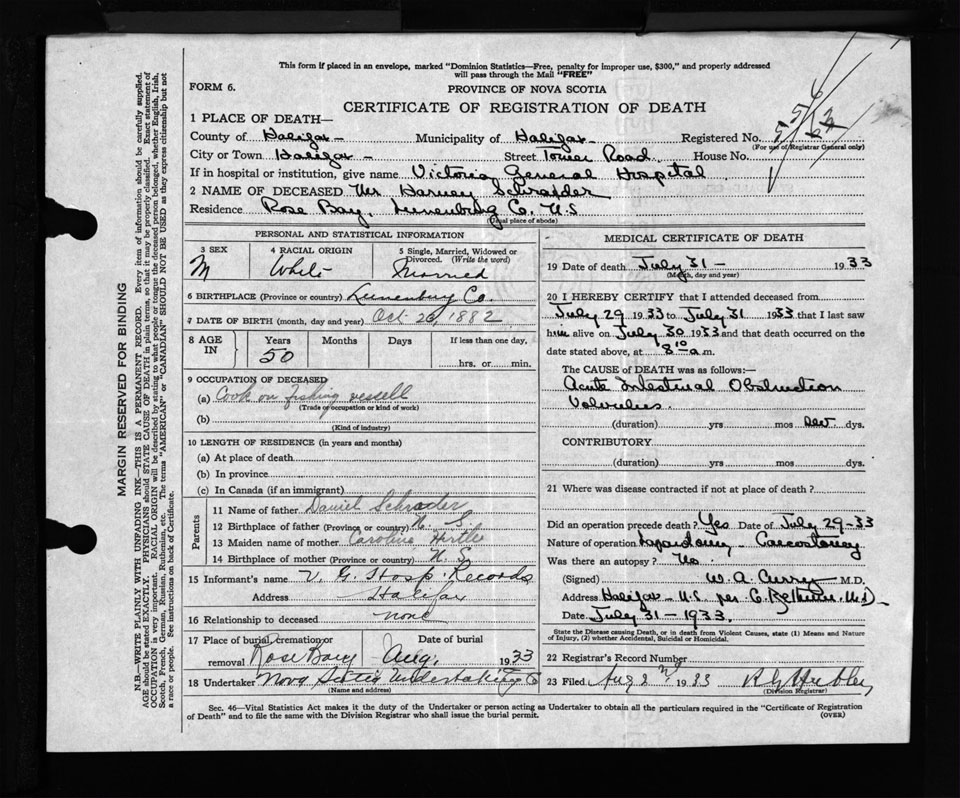 This form if placed in an envelope, marked "Dominion Statistics—Free, penalty for improper use, $300," and properly addressed
will pass through the Mail "FREE"
FORM 6.
PROVINCE OF NOVA SCOTIA
CERTIFICATE OF REGISTRATION OF DEATH
1 PLACE OF DEATH—
County of Halifax – Municipality of Halifax – Registered No.
(For use of Registrar General only)
City or Town Halifax – Street Tower Road House No.
If in hospital or institution, give name Victoria General Hospital
2 NAME OF DECEASED Mr Harvey Schrader
Residence Rose Bay, Lunenburg Co. N.S
(Usual place of abode)
PERSONAL AND STATISTICAL INFORMATION
3 SEX 4 RACIAL ORIGIN 5 Single, Married, Widowed or
Divorced. (Write the word)
M White Married
6 BIRTHPLACE (Province or country) Lunenburg Co.
7 DATE OF BIRTH (month, day and year) Oct 26, 1882
8 AGE IN Years Months Days If less than one day,
50 hrs. or min.
9 OCCUPATION OF DECEASED
(a) Cook on fishing vessell
(Trade or occupation or kind of work)
(b)
(Kind of industry)
10 LENGTH OF RESIDENCE (in years and months)
(a) At place of death
(b) In province
(c) In Canada (if an immigrant)
Parents
11 Name of father Daniel Schrader
12 Birthplace of father (Province or country) N. S.
13 Maiden name of mother Caroline Hirtle
14 Birthplace of mother (Province or country) N. S.
15 Informant's name V. G. Hosp. Records
Address Halifax
16 Relationship to deceased none
17 Place of burial, cremation or Date of burial
removal Rose Bay Aug. 1933
18 Undertaker Nova Scotia Undertaking Co
(Name and address)
MEDICAL CERTIFICATE OF DEATH
19 Date of death July 31 – 1933
(Month, day and year)
20 I HEREBY CERTIFY that I attended deceased from
July 29 1933 to July 31 1933 that I last saw
him alive on July 30 1933 and that death occurred on the
date stated above, at 8 10 a.m.
The CAUSE of DEATH was as follows:—
Acute Intestinal Obstruction
Volvulus.
(duration) yrs mos dys.
CONTRIBUTORY
(duration) yrs mos dys.
21 Where was disease contracted if not at place of death?
Did an operation precede death? Yes Date of July 29-33
Nature of operation Laparotomy –
Was there an autopsy? No
(Signed) W. A. Curry M.D.
Address Halifax – N.S. per M.D –
Date July 31 – 1933.
State the Disease causing Death, or in death from Violent Causes, state (1) Means and Nature
of Injury, (2) whether Accidental, Suicidal or Homicidal.
22 Registrar's Record Number
23 Filed Aug 2nd 1933
(Division Registrar)
Sec. 46—Vital Statistics Act makes it the duty of the Undertaker or person acting as Undertaker to obtain all the particulars required in the "Certificate of Registration
of Death" and to file the same with the Division Registrar who shall issue the burial permit. (OVER)
MARGIN RESERVED FOR BINDING
N.B.—WRITE PLAINLY WITH UNFADING INK—THIS IS A PERMANENT RECORD. Every item of information should be carefully supplied.
AGE should be stated EXACTLY. PHYSICIANS should STATE CAUSE OF DEATH in plain terms, so that it may be properly classified. Exact statement of
OCCUPATION is very important. RACIAL ORIGIN will be described by stating to what people or tongue the deceased person belonged, whether English, Irish,
Scotch, French, German, Russian, Ruthenian, etc. The terms "AMERICAN" or "CANADIAN" SHOULD NOT BE USED as they express citizenship but not
a race or people. See instructions on back of Certificate.